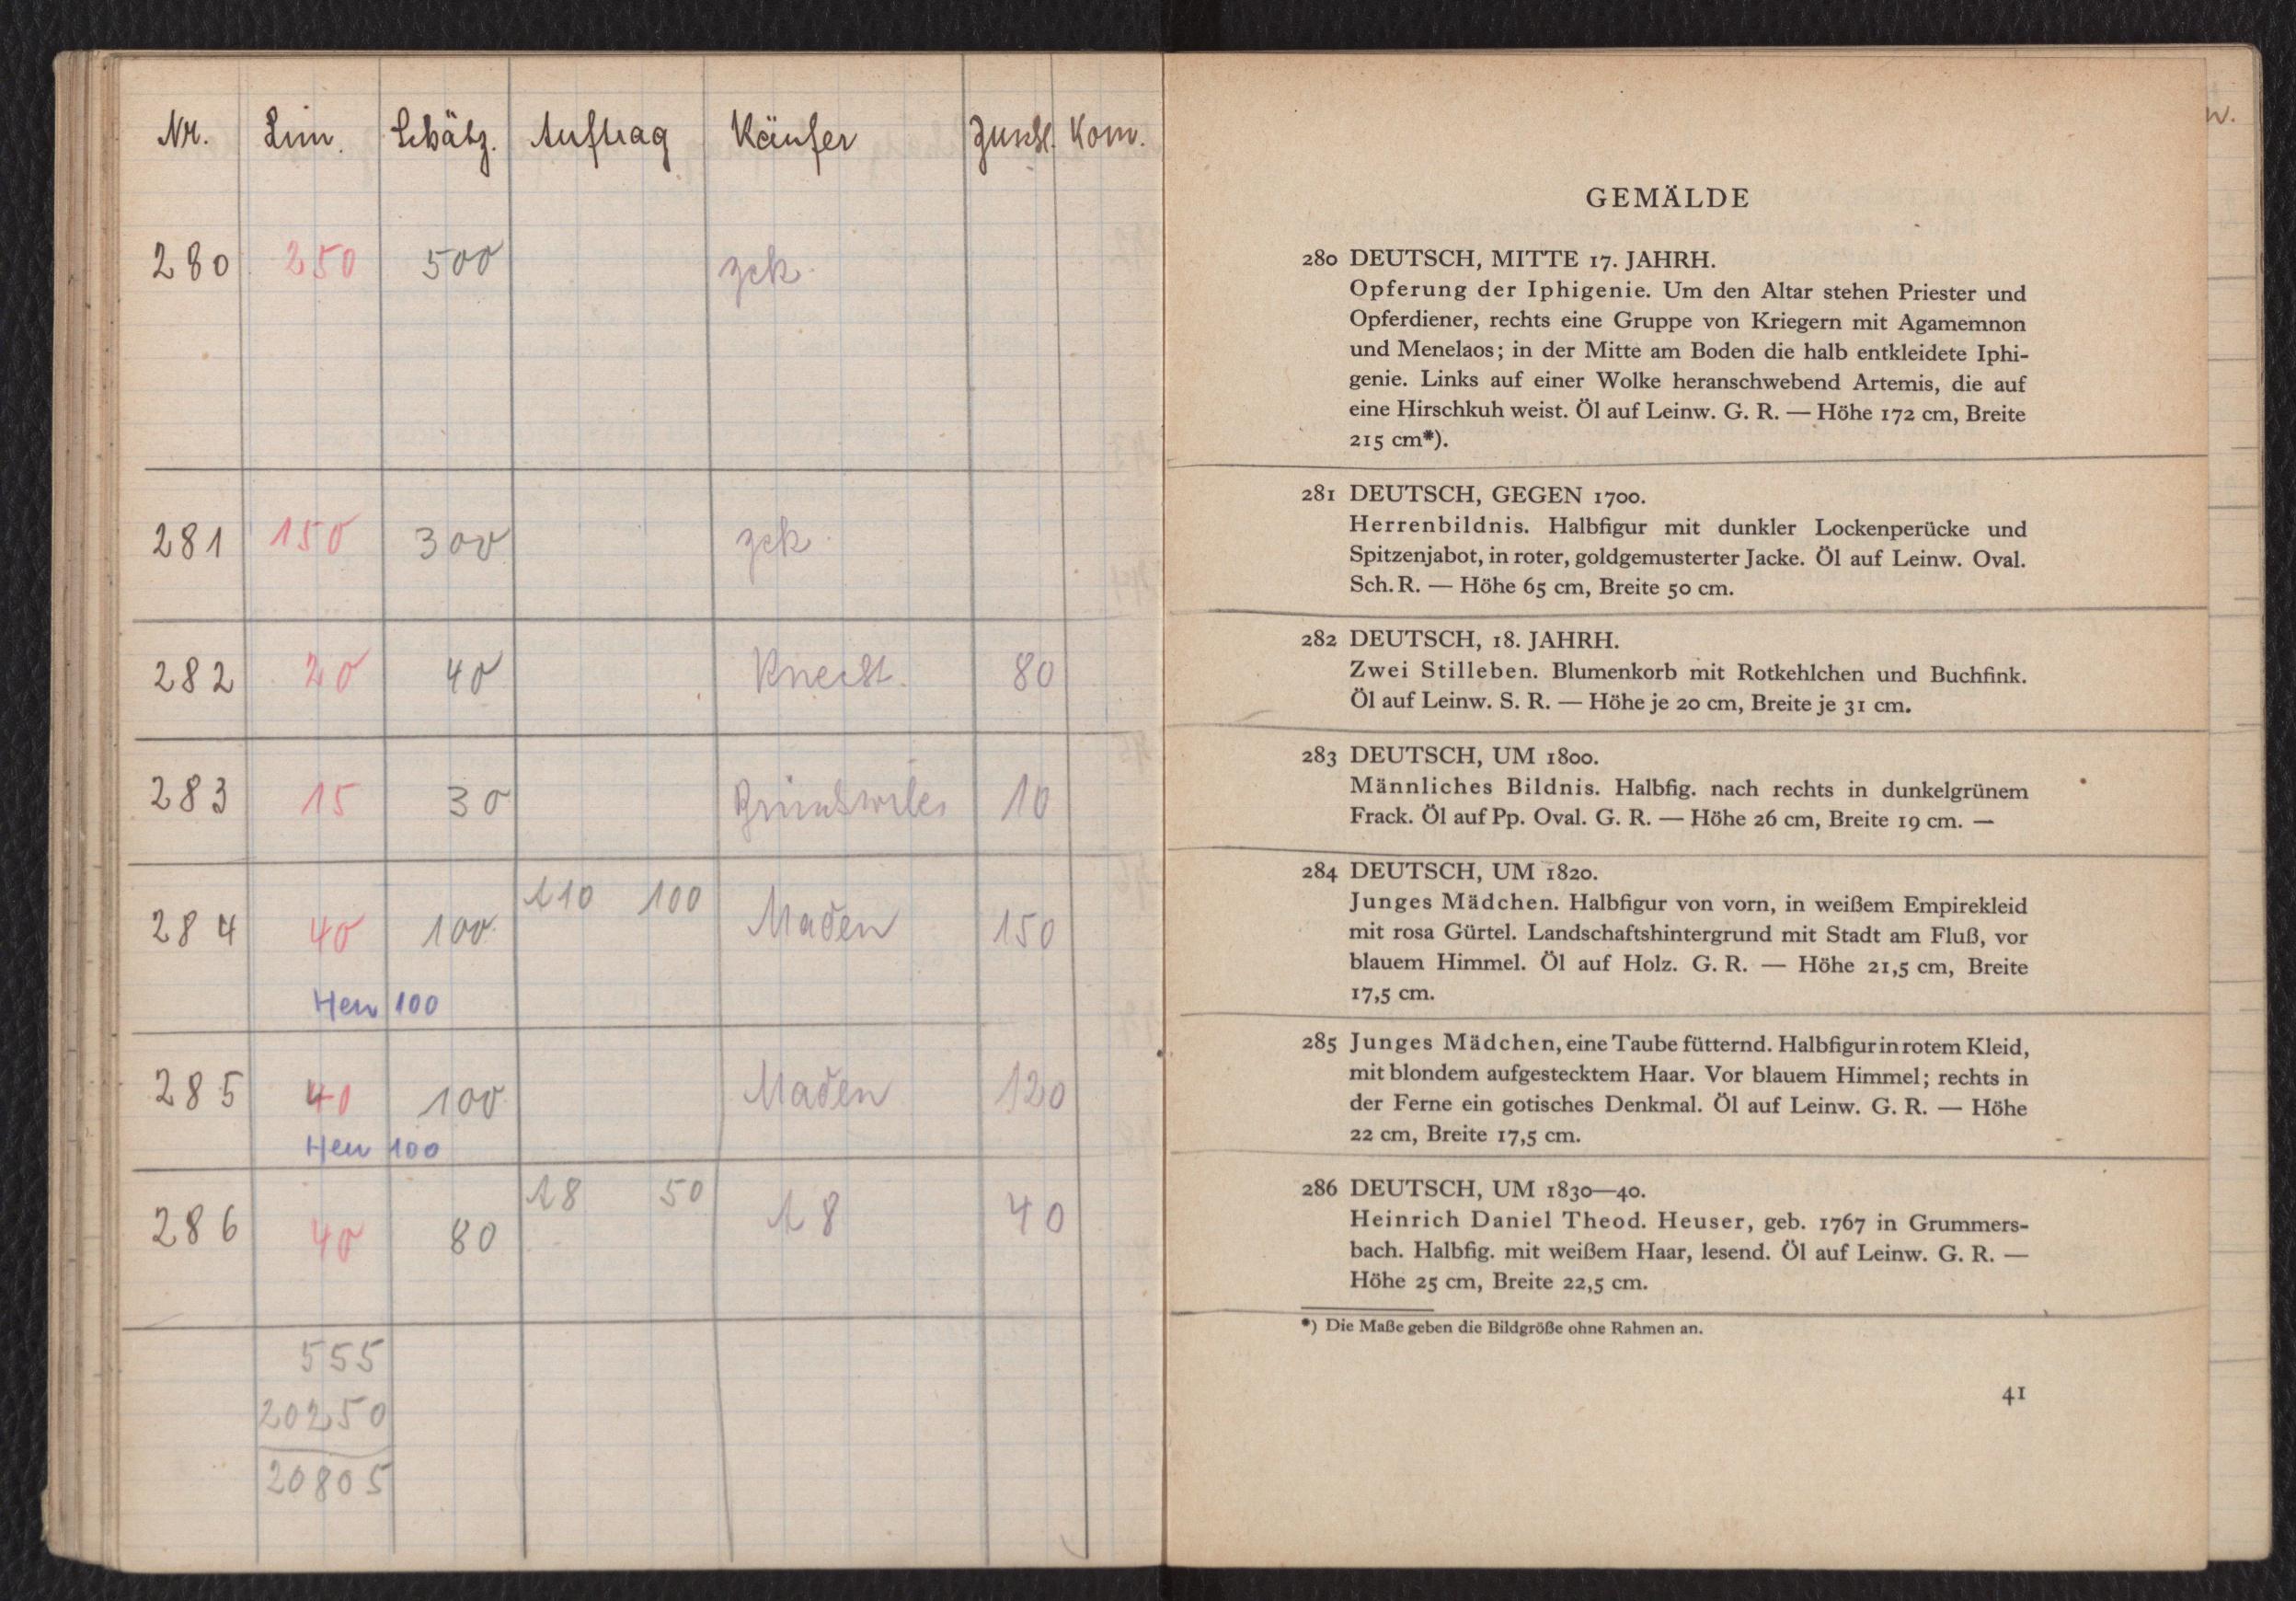 Nr. Lim. Schätz. Auftrag Käufer Zuschl. Kom.
280 250 500 zck.
281 150 300 zck.
282 20 40 Knecht. 80
283 15 30 10
284 40 100 110 100 Maden 150
Hen 100
285 40 100 Maden 120
Hen 100
286 40 80 18 50 18 40
555
20250
20805
GEMÄLDE
280 DEUTSCH, MITTE 17. JAHRH.
Opferung der Iphigenie. Um den Altar stehen Priester und
Opferdiener, rechts eine Gruppe von Kriegern mit Agamemnon
und Menelaos; in der Mitte am Boden die halb entkleidete Iphi-
genie. Links auf einer Wolke heranschwebend Artemis, die auf
eine Hirschkuh weist. Öl auf Leinw. G. R. — Höhe 172 cm, Breite
215 cm*).
281 DEUTSCH, GEGEN 1700.
Herrenbildnis. Halbfigur mit dunkler Lockenperücke und
Spitzenjabot, in roter, goldgemusterter Jacke. Öl auf Leinw. Oval.
Sch. R. — Höhe 65 cm, Breite 50 cm.
282 DEUTSCH, 18. JAHRH.
Zwei Stilleben. Blumenkorb mit Rotkehlchen und Buchfink.
Öl auf Leinw. S. R. — Höhe je 20 cm, Breite je 31 cm.
283 DEUTSCH, UM 1800.
Männliches Bildnis. Halbfig. nach rechts in dunkelgrünem
Frack. Öl auf Pp. Oval. G. R. — Höhe 26 cm, Breite 19 cm. —
284 DEUTSCH, UM 1820.
Junges Mädchen. Halbfigur von vorn, in weißem Empirekleid
mit rosa Gürtel. Landschaftshintergrund mit Stadt am Fluß, vor
blauem Himmel. Öl auf Holz. G. R. — Höhe 21,5 cm, Breite
17,5 cm.
285 Junges Mädchen, eine Taube fütternd. Halbfigur in rotem Kleid,
mit blondem aufgestecktem Haar. Vor blauem Himmel; rechts in
der Ferne ein gotisches Denkmal. Öl auf Leinw. G. R. — Höhe
22 cm, Breite 17,5 cm.
286 DEUTSCH, UM 1830—40.
Heinrich Daniel Theod. Heuser, geb. 1767 in Grummers-
bach. Halbfig. mit weißem Haar, lesend. Öl auf Leinw. G. R. —
Höhe 25 cm, Breite 22,5 cm.
*) Die Maße geben die Bildgröße ohne Rahmen an.
41